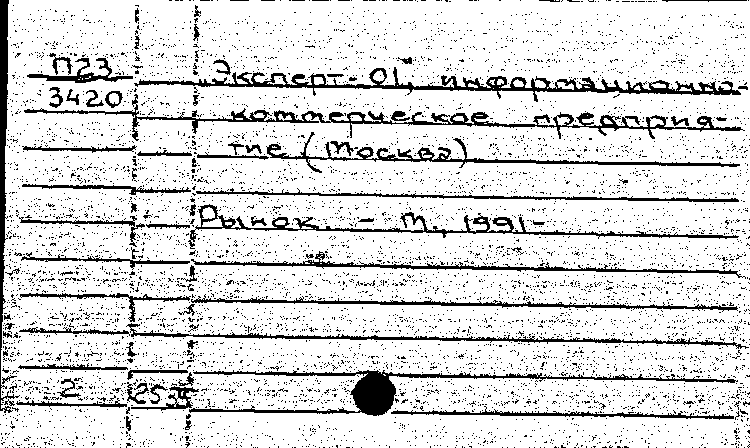 П23
3420
„Эксперт-01", информационно-
коммерческое предприя-
тие (Москва)
Рынок. - М., 1991-
2